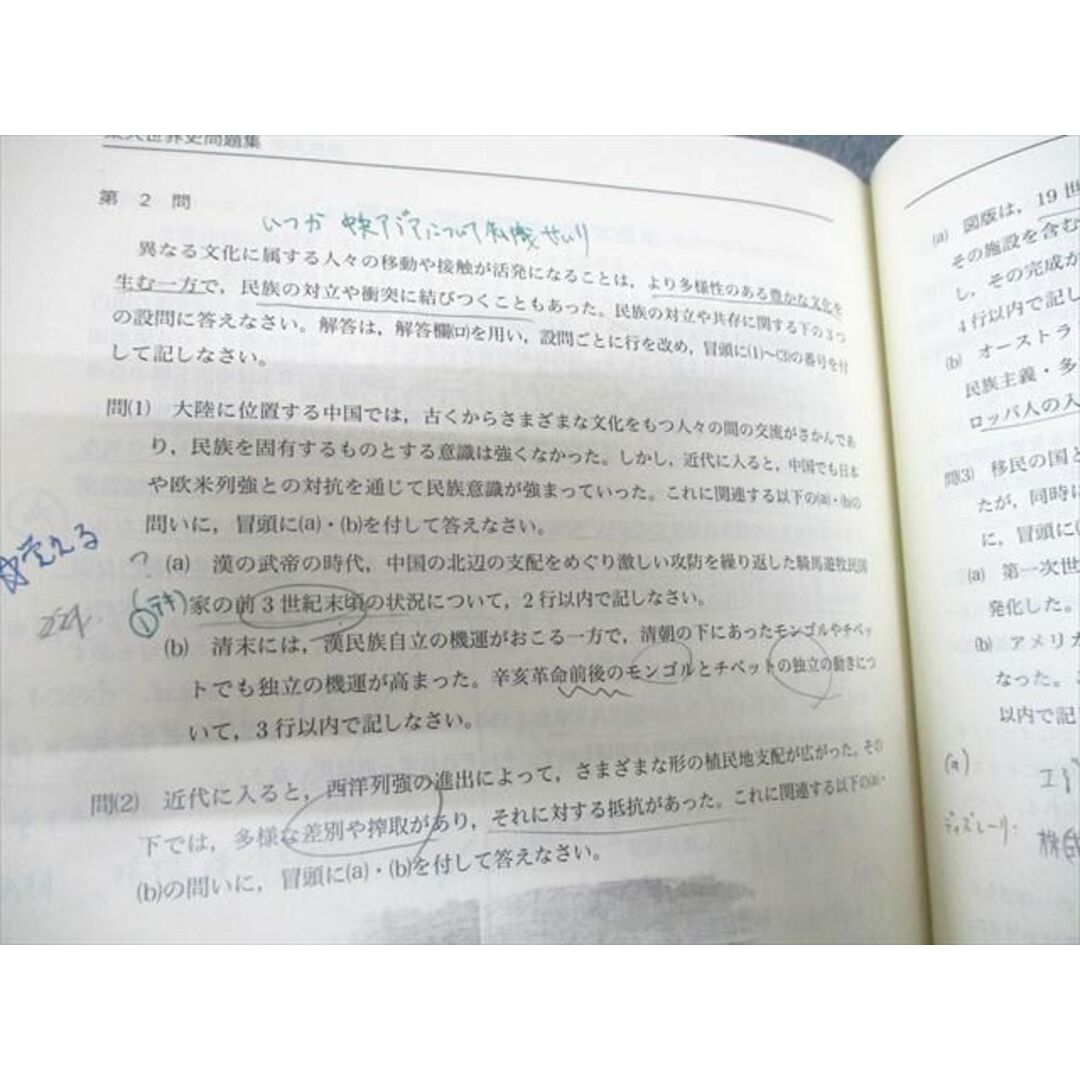 東大世界史問題集
第 2 問
いつか 中央アジアについて知識せいり
異なる文化に属する人々の移動や接触が活発になることは，より多様性のある豊かな文化を
生む一方で，民族の対立や衝突に結びつくこともあった。民族の対立や共存に関する下の3つ
の設問に答えなさい。解答は，解答欄(ロ)を用い，設問ごとに行を改め，冒頭に(1)～(3)の番号を付
して記しなさい。
問(1) 大陸に位置する中国では，古くからさまざまな文化をもつ人々の間の交流がさかんであ
り，民族を固有するものとする意識は強くなかった。しかし，近代に入ると，中国でも日本
や欧米列強との対抗を通じて民族意識が強まっていった。これに関連する以下の(a)・(b)の
問いに，冒頭に(a)・(b)を付して答えなさい。
覚える
? (a) 漢の武帝の時代，中国の北辺の支配をめぐり激しい攻防を繰り返した騎馬遊牧民国
家の前3世紀末頃の状況について，2行以内で記しなさい。
(b) 清末には，漢民族自立の機運がおこる一方で，清朝の下にあったモンゴルやチベッ
トでも独立の機運が高まった。辛亥革命前後のモンゴルとチベットの独立の動きにつ
いて，3行以内で記しなさい。
問(2) 近代に入ると，西洋列強の進出によって，さまざまな形の植民地支配が広がった。その
下では，多様な差別や搾取があり，それに対する抵抗があった。これに関連する以下の(a)・
(b)の問いに，冒頭に(a)・(b)を付して答えなさい。
(a) 図版は，19世
その施設を含む
し，その完成が
4行以内で記し
(b) オーストラ
民族主義・多
ロッパ人の入
問(3) 移民の国と
たが，同時に
に，冒頭に(
(a) 第一次世
発化した。
(b) アメリカ
なった。
以内で記
(a)
ディズレーリ.